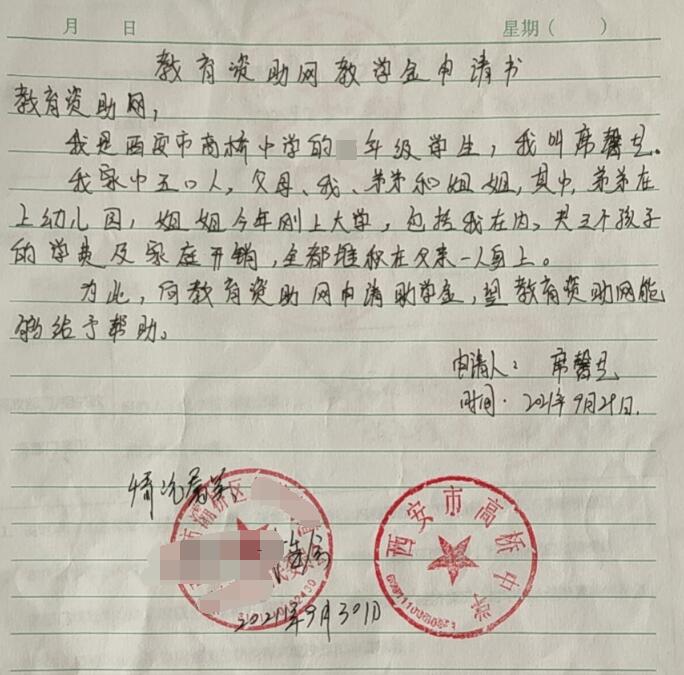 月 日 星期( )
教育资助网教学金申请书
教育资助网,
我是西安市高桥中学的 年级学生,我叫席馨旦。
我家中五口人,父母、我、弟弟和姐姐,其中,弟弟在
上幼儿园,姐姐今年刚上大学,包括我在内,共三个孩子
的学费及家庭开销,全都堆积在父亲一人身上。
为此,向教育资助网申请助学金,望教育资助网能
够给予帮助。
申请人: 席馨旦
时间:2021年9月29日.
情况属实,
市灞桥区
西安市高桥中学
2021年9月30日